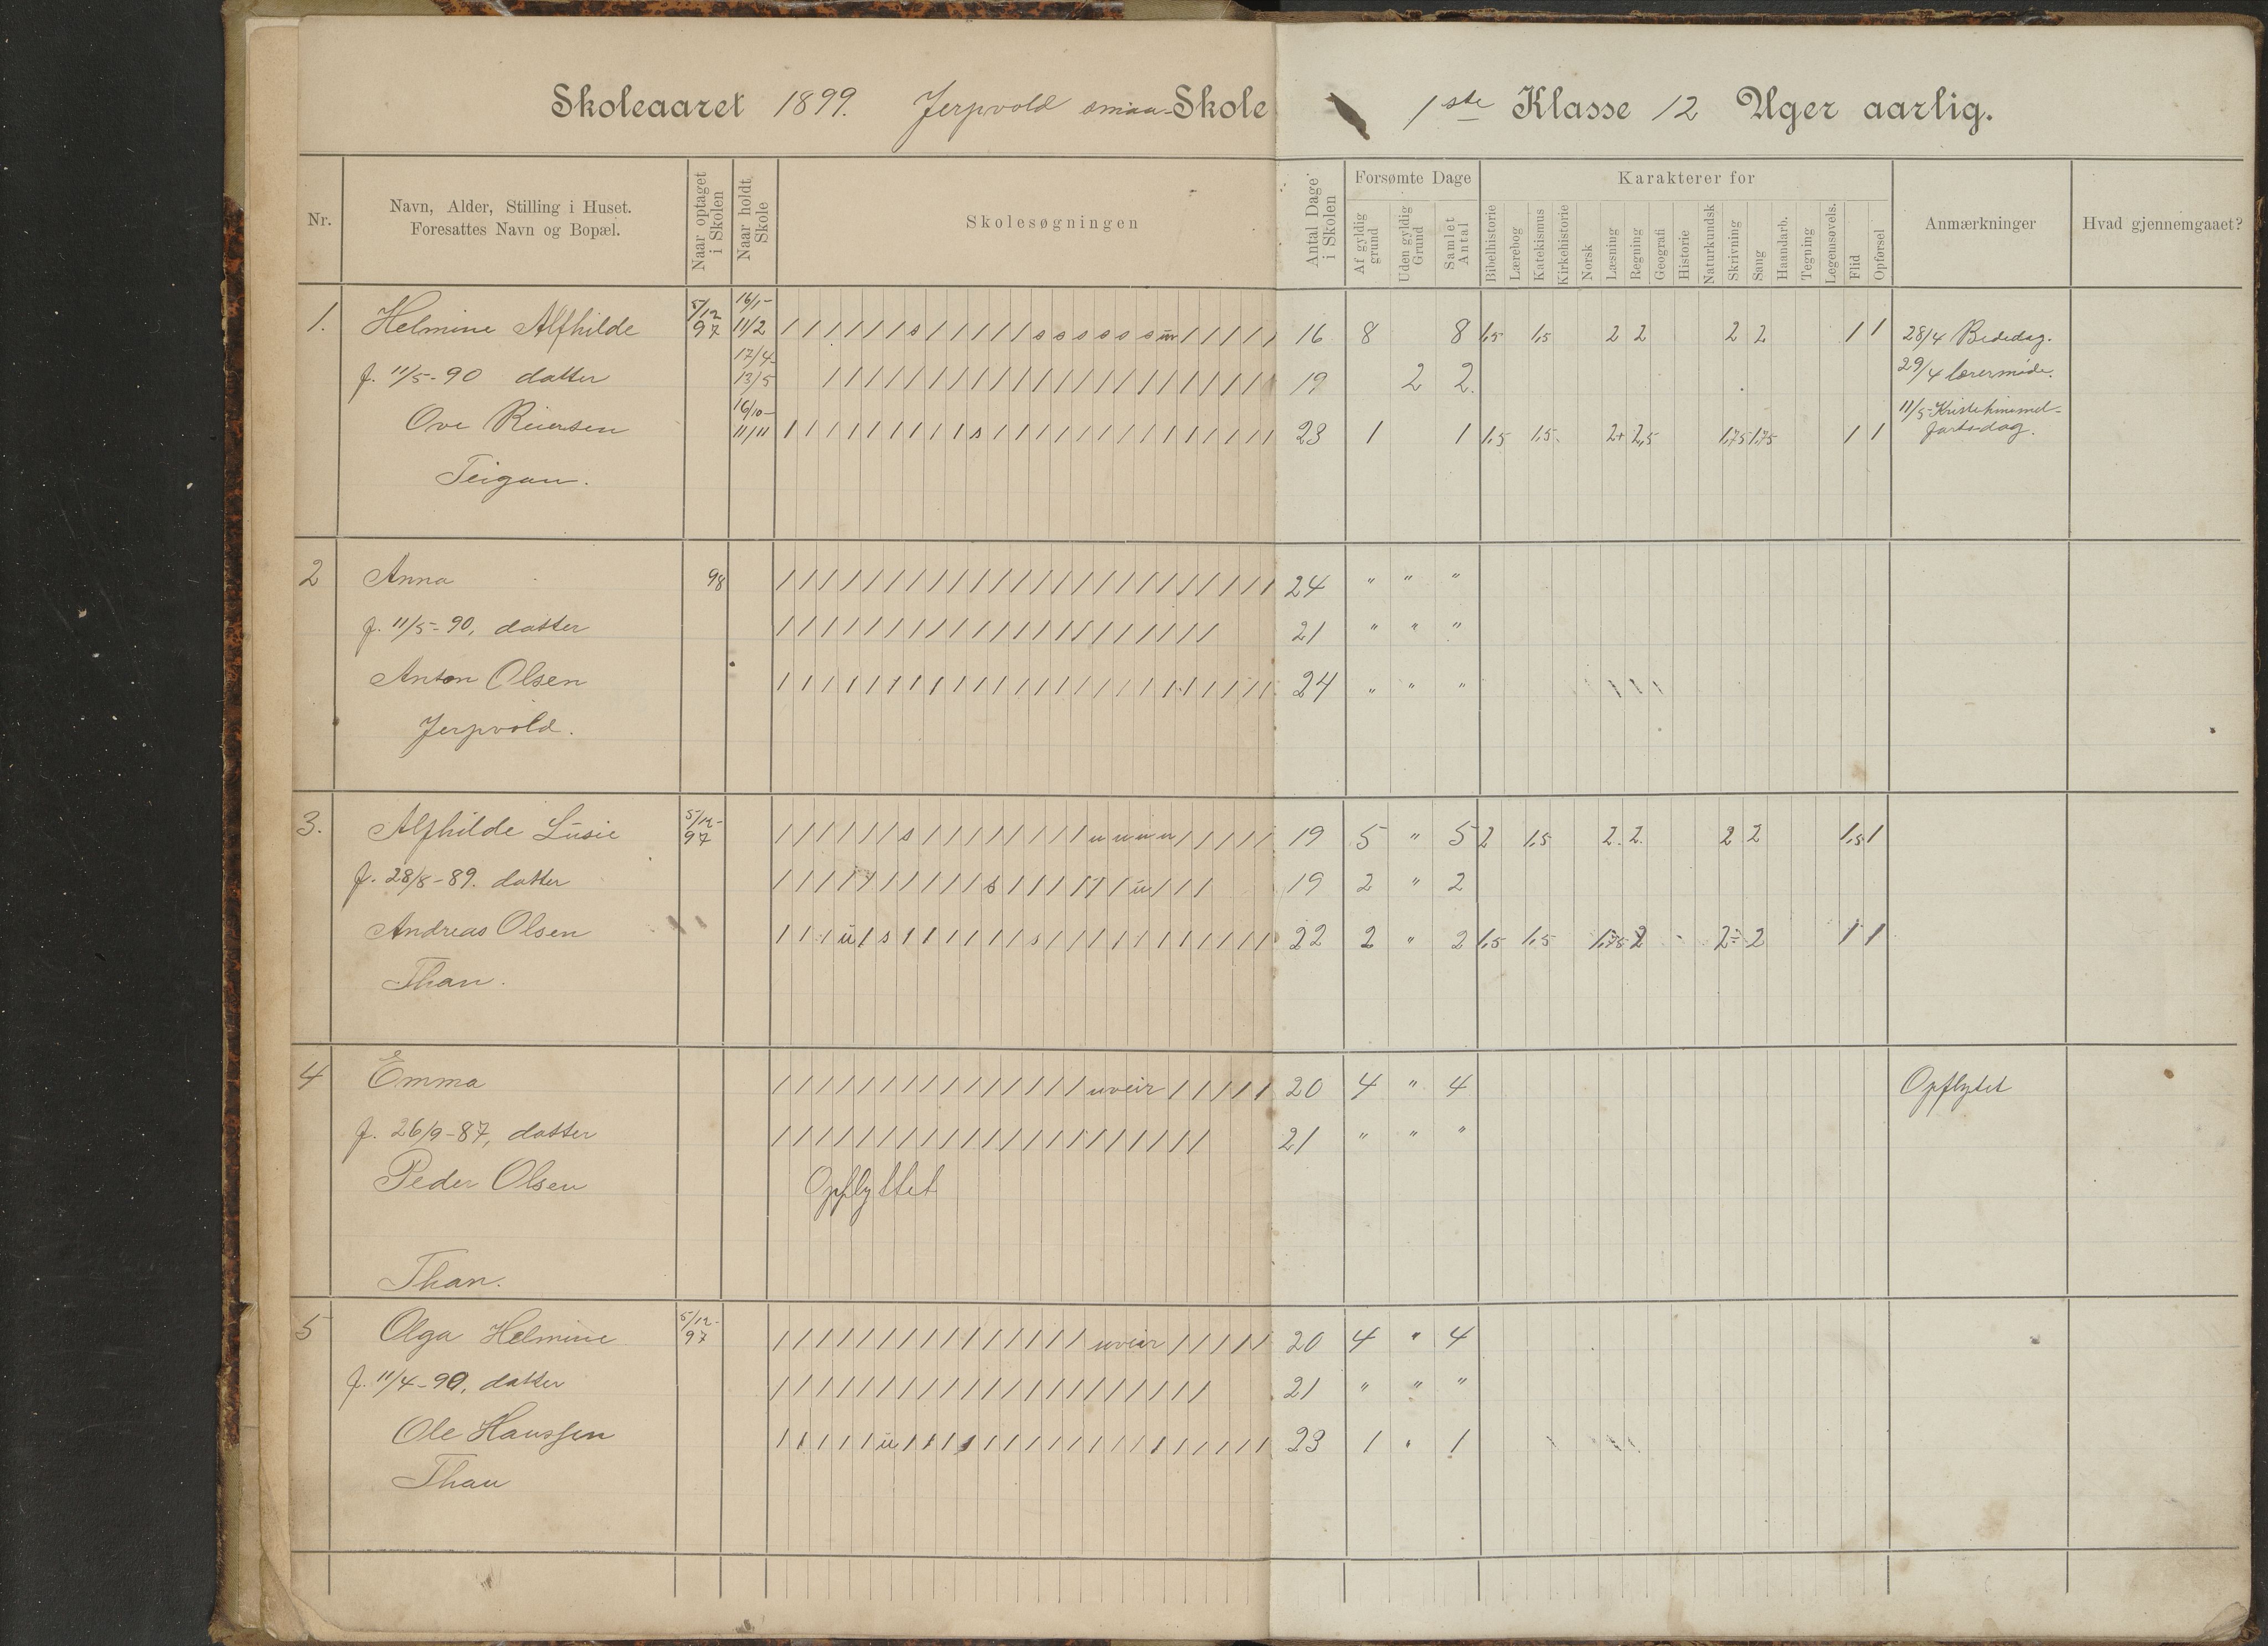 Skoleaaret 1899. Jerpvold smaa-Skole 1ste Klasse 12 Uger aarlig.
Nr.
Navn, Alder, Stilling i Huset.
Foresattes Navn og Bopæl.
Naar optaget i Skolen
Naar holdt Skole
Skolesøgningen
Antal Dage i Skolen
Forsømte Dage
Af gyldig grund
Uden gyldig Grund
Samlet Antal
Karakterer for
Bibelhistorie
Lærebog
Katekismus
Kirkehistorie
Norsk
Læsning
Regning
Geografi
Historie
Naturkundsk
Skrivning
Sang
Haandarb.
Tegning
Legemsøvels.
Flid
Opførsel
Anmærkninger
Hvad gjennemgaaet?
1. Helmine Alfhilde 5/12 97 16/1- 11/2 / / / / / / s / / / / / s s s s s s uv / / / / / 16 8 8 1,5 1,5 2 2 2 2 1 1 28/4 Bededag.
f. 11/5-90 datter 17/4- 13/5 / / / / / / / / / / / / / / / / / / / / / / 19 2 2. 29/4 lærermøde.
Ove Reiersen 16/10- 11/11 / / / / / / / / / s / / / / / / / / / / / / / / 23 1 1 1,5 1,5. 2+ 2,5 1,75 1,75 1 1 11/5-Kristihimmel-
fartsdag.
Teigan.
2 Anna 98 / / / / / / / / / / / / / / / / / / / / / / / / 24 " " "
f. 11/5-90, datter / / / / / / / / / / / / / / / / / / / / / 21 " " "
Anton Olsen / / / / / / / / / / / / / / / / / / / / / / / / 24 " " "
Jerpvold.
3. Alfhilde Lusie 5/12- 97 / / / / / / s / / / / / / / / u u u u / / / / / 19 5 " 5 2 1,5 2. 2. 2 2 1,5 1
f. 28/8-89. datter / / / / / / / / / / s / / / / / / u / / / 19 2 " 2
Andreas Olsen / / / u / s / / / / / / s / / / / / / / / / / / 22 2 " 2 1,5 1,5 1,75 2 2- 2 1 1
Than.
4 Emma / / / / / / / / / / / / / / / uveir / / / / / 20 4 " 4 Opflytet
f. 26/9-87, datter / / / / / / / / / / / / / / / / / / / / / 21 " " "
Peder Olsen Opflyttet
Than.
5 Olga Helmine 5/12- 97 / / / / / / / / / / / / / / / uveir / / / / / 20 4 " 4
f. 11/4-90, datter / / / / / / / / / / / / / / / / / / / / / 21 " " "
Ole Hanssen / / / / / u / / / / / / / / / / / / / / / / / / 23 1 " 1
Than